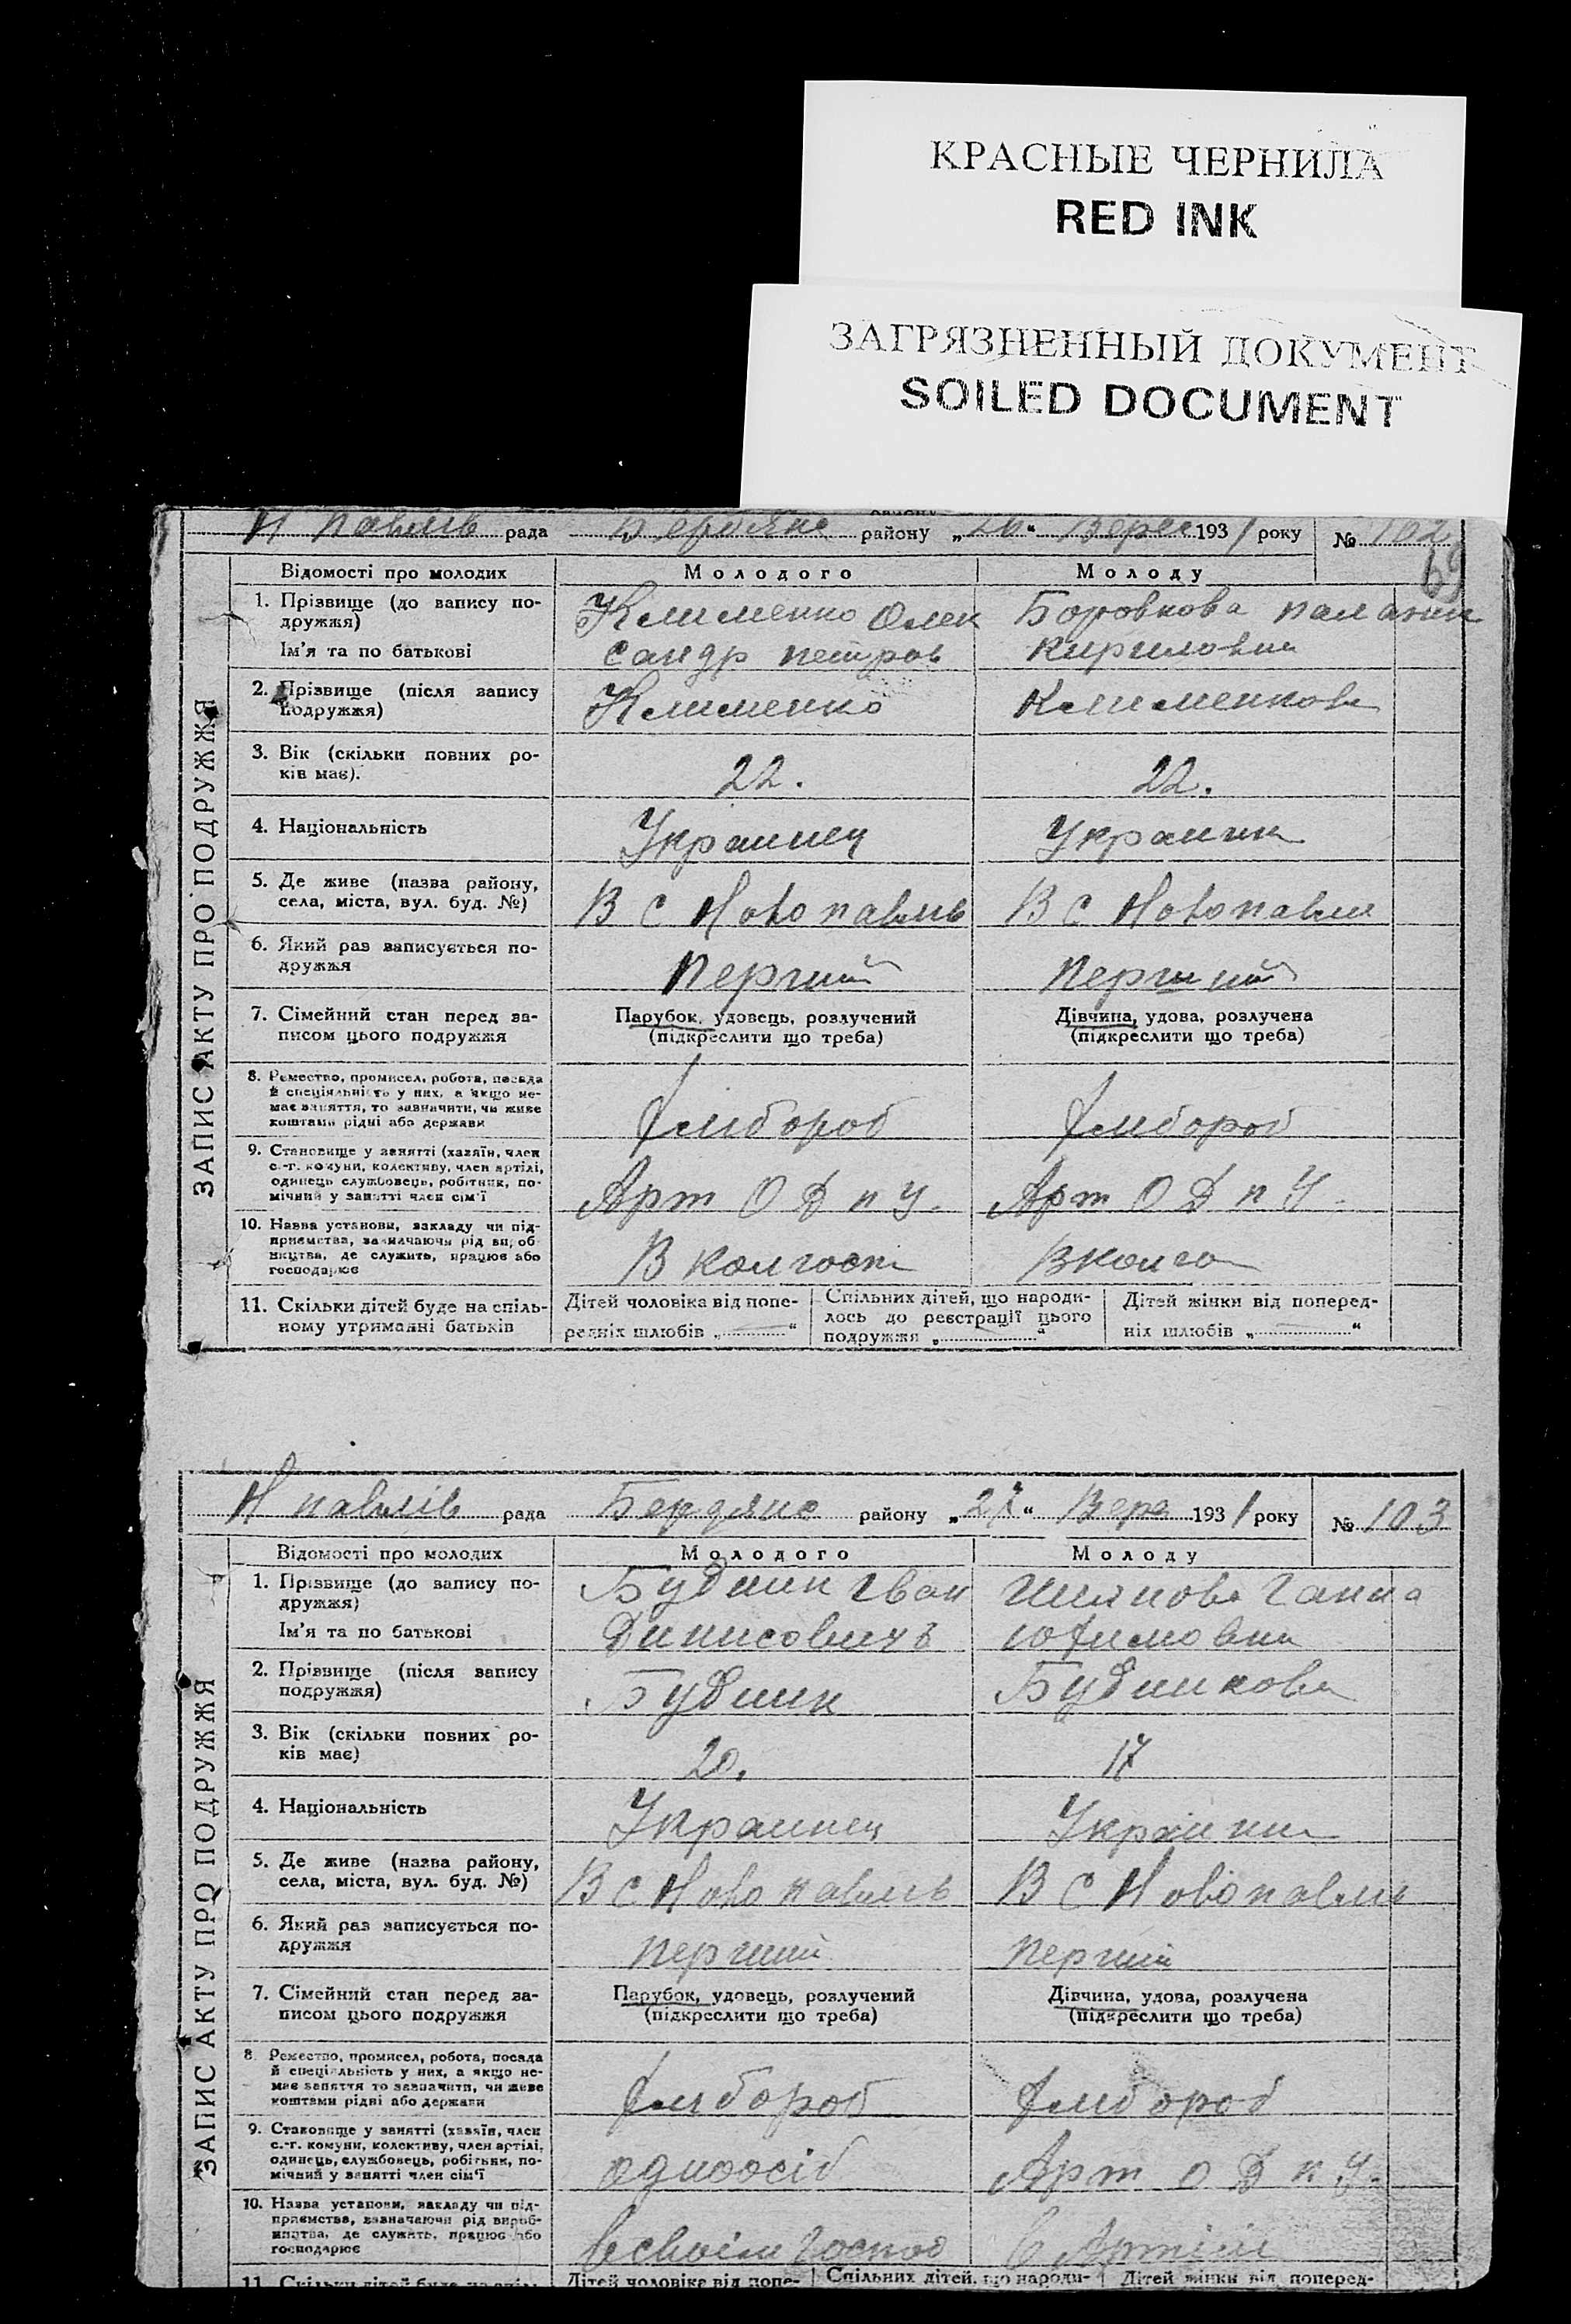 КРАСНЫЕ ЧЕРНИЛА
RED INK
ЗАГРЯЗНЕННЫЙ ДОКУМЕНТ
SOILED DOCUMENT
Н павлів рада Бердянс району „26“ Верес 1931 року № 102
69
ЗАПИС АКТУ ПРО ПОДРУЖЖЯ
Відомості про молодих Молодого Молоду
1. Прізвище (до запису по- Клименко Олек Боровкова
дружжя)
Ім'я та по батькові сандр петров Кириловна
2. Прізвище (після запису Клименко Клименкова
подружжя)
3. Вік (скільки повних ро- 22. 22.
ків має).
4. Національність Украинец Украинк
5. Де живе (назва району, В С Новопавлів В С Новопавлі
села, міста, вул. буд. №)
6. Який раз записується по- перший перший
дружжя
7. Сімейний стан перед за- Парубок, удовець, розлучений Дівчина, удова, розлучена
писом цього подружжя (підкреслити що треба) (підкреслити що треба)
8. Ремество, промисел, робота, посада
й спеціяльність у них, а якщо не-
має заняття, то зазначити, чи живе
коштами рідні або держави хлибороб хлибороб
9. Становище у занятті (хазяїн, член
с.-г. комуни, колективу, член артілі,
одинець службовець, робітник, по-
мічний у занятті член сім'ї Арт О Д п У. Арт О Д п У.
10. Назва установи, закладу чи під-
приємства, зазначаючи рід вироб
ництва, де служить, працює або
господарює В колгосп В колго
11. Скільки дітей буде на спіль- Дітей чоловіка від попе- Спільних дітей, що народи- Дітей жінки від поперед-
ному утриманні батьків редніх шлюбів „ “ лось до реєстрації цього ніх шлюбів „ “
подружжя „ “
Н павлів рада Бердянс району „27“ Вере 1931 року № 103
ЗАПИС АКТУ ПРО ПОДРУЖЖЯ
Відомості про молодих Молодого Молоду
1. Прізвище (до запису по- Будник Іван Ганна
дружжя)
Ім'я та по батькові Динисовичъ Юхимовна
2. Прізвище (після запису Будник Будникова
подружжя)
3. Вік (скільки повних ро- 20. 17
ків має)
4. Національність Украинец Украинк
5. Де живе (назва району, В С Новопавлів В С Новопавлі
села, міста, вул. буд. №)
6. Який раз записується по- перший перший
дружжя
7. Сімейний стан перед за- Парубок, удовець, розлучений Дівчина, удова, розлучена
писом цього подружжя (підкреслити що треба) (підкреслити що треба)
8. Ремество, промисел, робота, посада
й спеціяльність у них, а якщо не-
має заняття то зазначити, чи живе
коштами рідні або держави хлибороб хлибороб
9. Становище у занятті (хазяїн, член
с.-г. комуни, колективу, член артілі,
одинець, службовець, робітник, по-
мічний у занятті член сім'ї одноосіб Арт О Д п У.
10. Назва установи, закладу чи під-
приємства, зазначаючи рід вироб-
ництва, де служить, працює або
господарює в своїм господ в Артілі
11. Скільки дітей буде на спіль- Дітей чоловіка від попе- Спільних дітей, що народи- Дітей жінки від поперед-